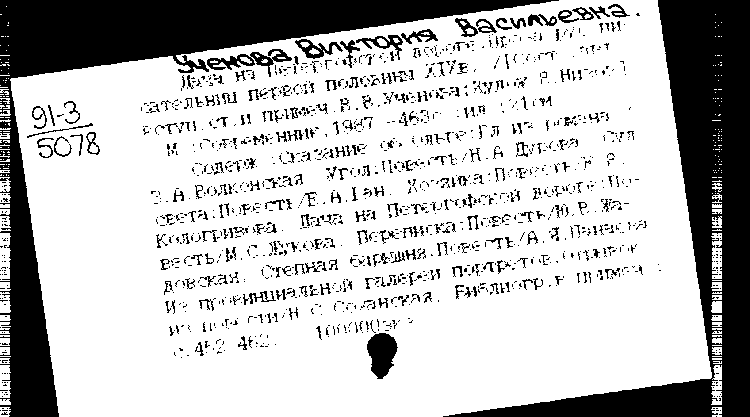 Ученова Виктория Васильевна.
Дача на Петергофской дороге: Проза рус. пи-
сательниц первой половины XIXв. /[Сост., авт.
вступ.ст.и примеч.В.В.Ученова;Худож В.Низов]
М.:Современник,1987 -463с.:ил.;21см
Содерж.:Сказание об Ольге:Гл из романа /
З.А.Волконская Угол:Повесть/Н.А Дурова Суд
света:Повесть/Е.А.Ган. Хозяйка:Повесть/
Кологривова. Дача на Петергофской дороге:По-
весть/М.С.Жукова. Переписка:Повесть/Ю.В.Жа-
довская. Степная барышня.Повесть/А.Я.Панаева
Из провинциальной галереи портретов.Отрывок
из повести/Н С.Соханская. Библиогр.в примеч.:
с.452-462. 100000экз
91-3
5078